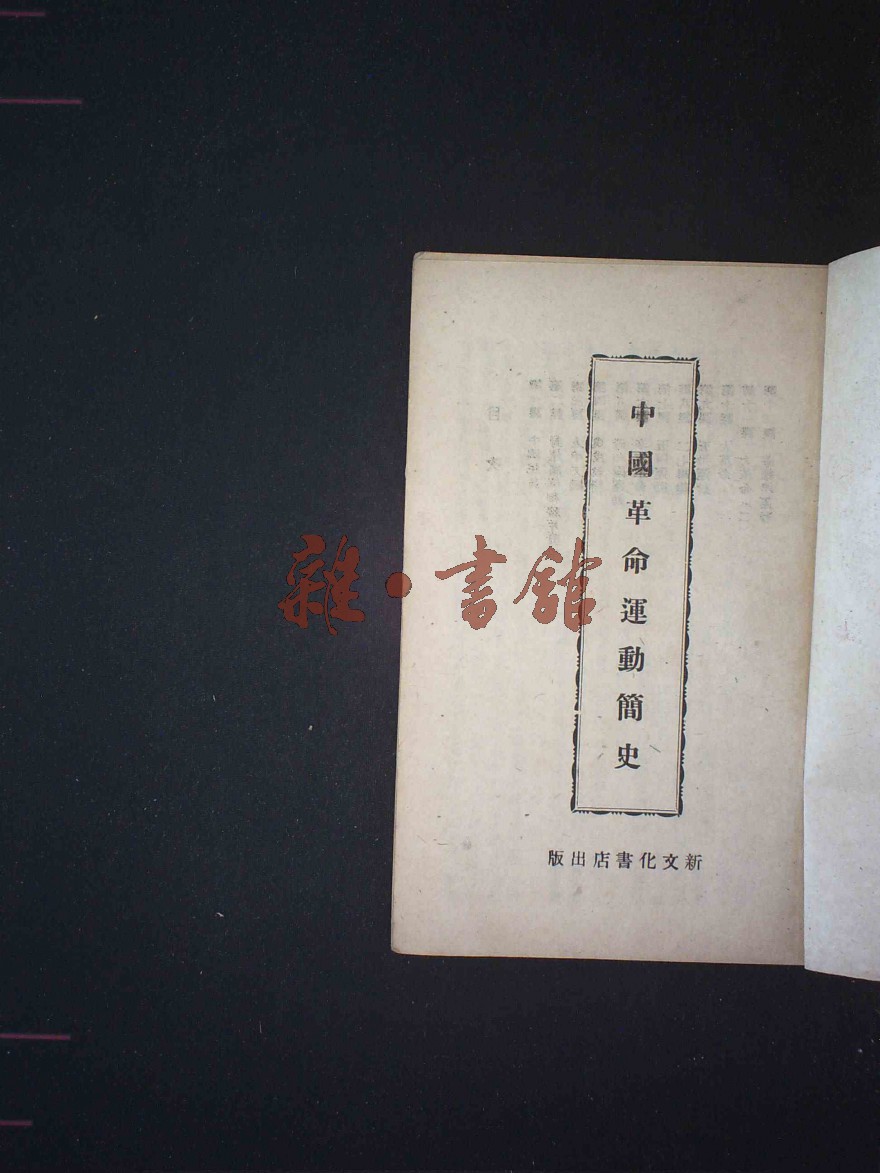 中國革命運動簡史
新文化書店出版
雜·書館